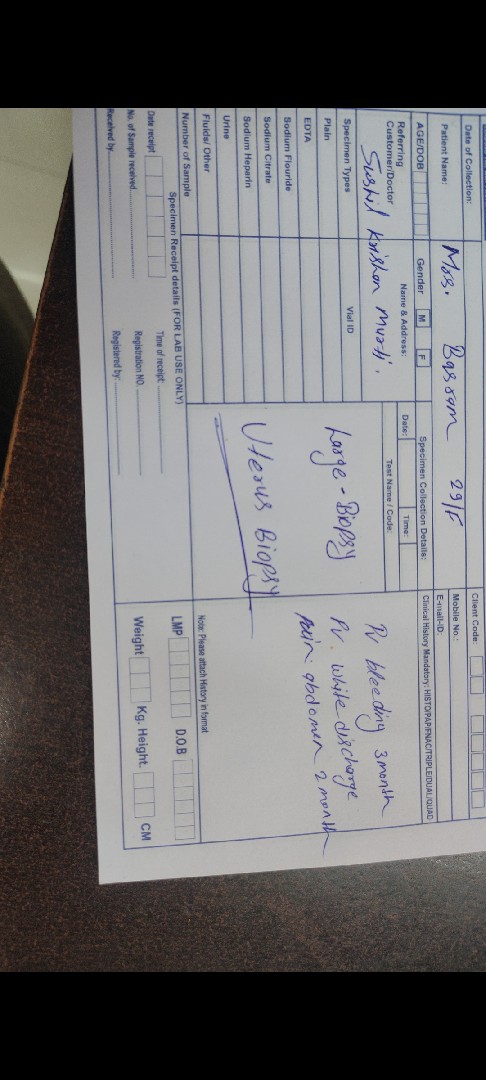 Date of Collection:
Client Code:
Patient Name: Mrs. Bassam 29/F
Mobile No.:
E-mail-ID:
AGE/DOB
Gender M F
Specimen Collection Details:
Clinical History Mandatory: HISTO/PAP/FNAC/TRIPLE/DUAL/QUAD
Referring Customer/Doctor
Name & Address:
Date:
Time:
Sushil Krishan Murti,
Test Name / Code:
Specimen Types
Vial ID
Plain
EDTA
Sodium Flouride
Sodium Citrate
Sodium Heparin
Urine
Fluids/ Other
Number of Sample
Large - Biopsy
Uterus Biopsy
PV bleeding 3 month
PV. white discharge
Pain. abdomen 2 month
Note: Please attach History in format
Specimen Receipt details (FOR LAB USE ONLY)
LMP
D.O.B
Date receipt
Time of receipt:
Weight
Kg. Height.
CM
No. of Sample received
Registration NO.
Received by:
Registered by: